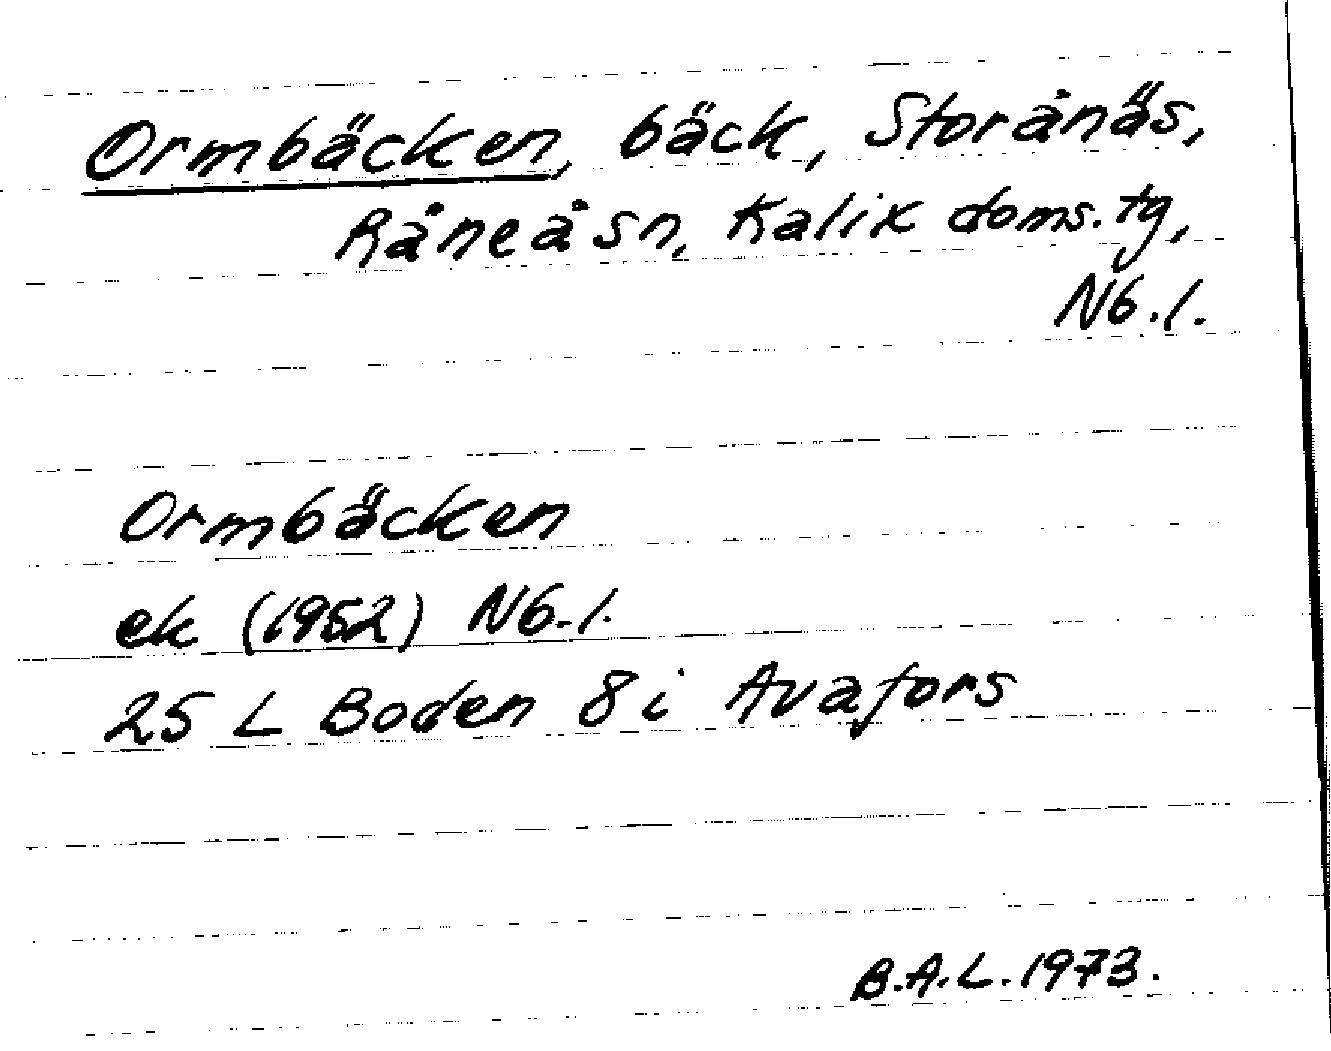 Ormbäcken, bäck, Storånäs,
Råneå sn, Kalix doms. tg,
Nb. l.
Ormbäcken
ek (1952) Nb. l.
25 L Boden 8 i Avafors
B.A.L. 1973.